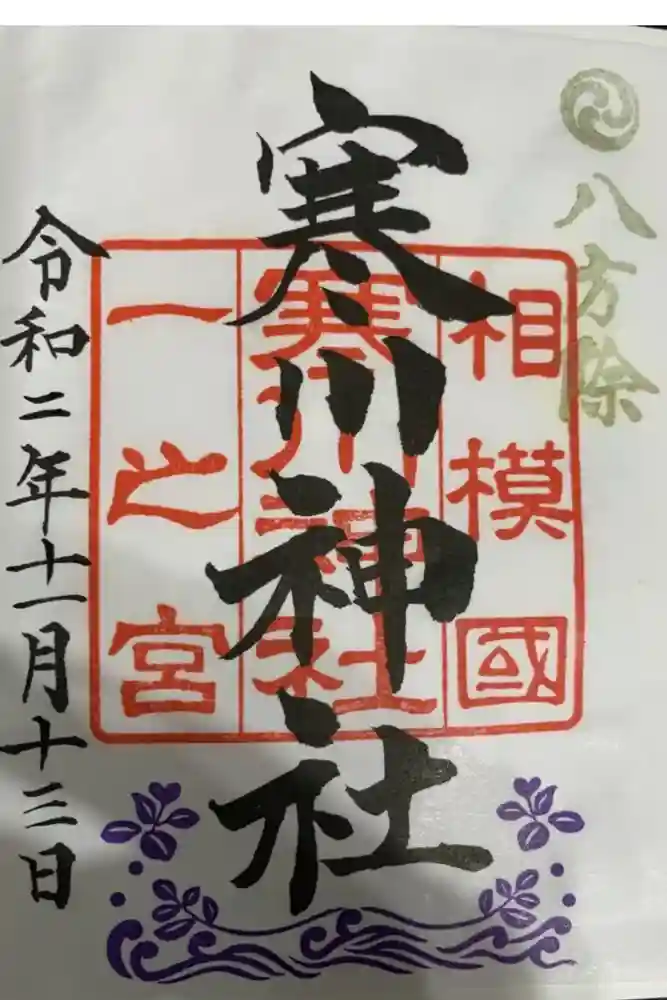 八方除
相模國
寒川神社
一之宮
寒川神社
令和二年十一月十三日